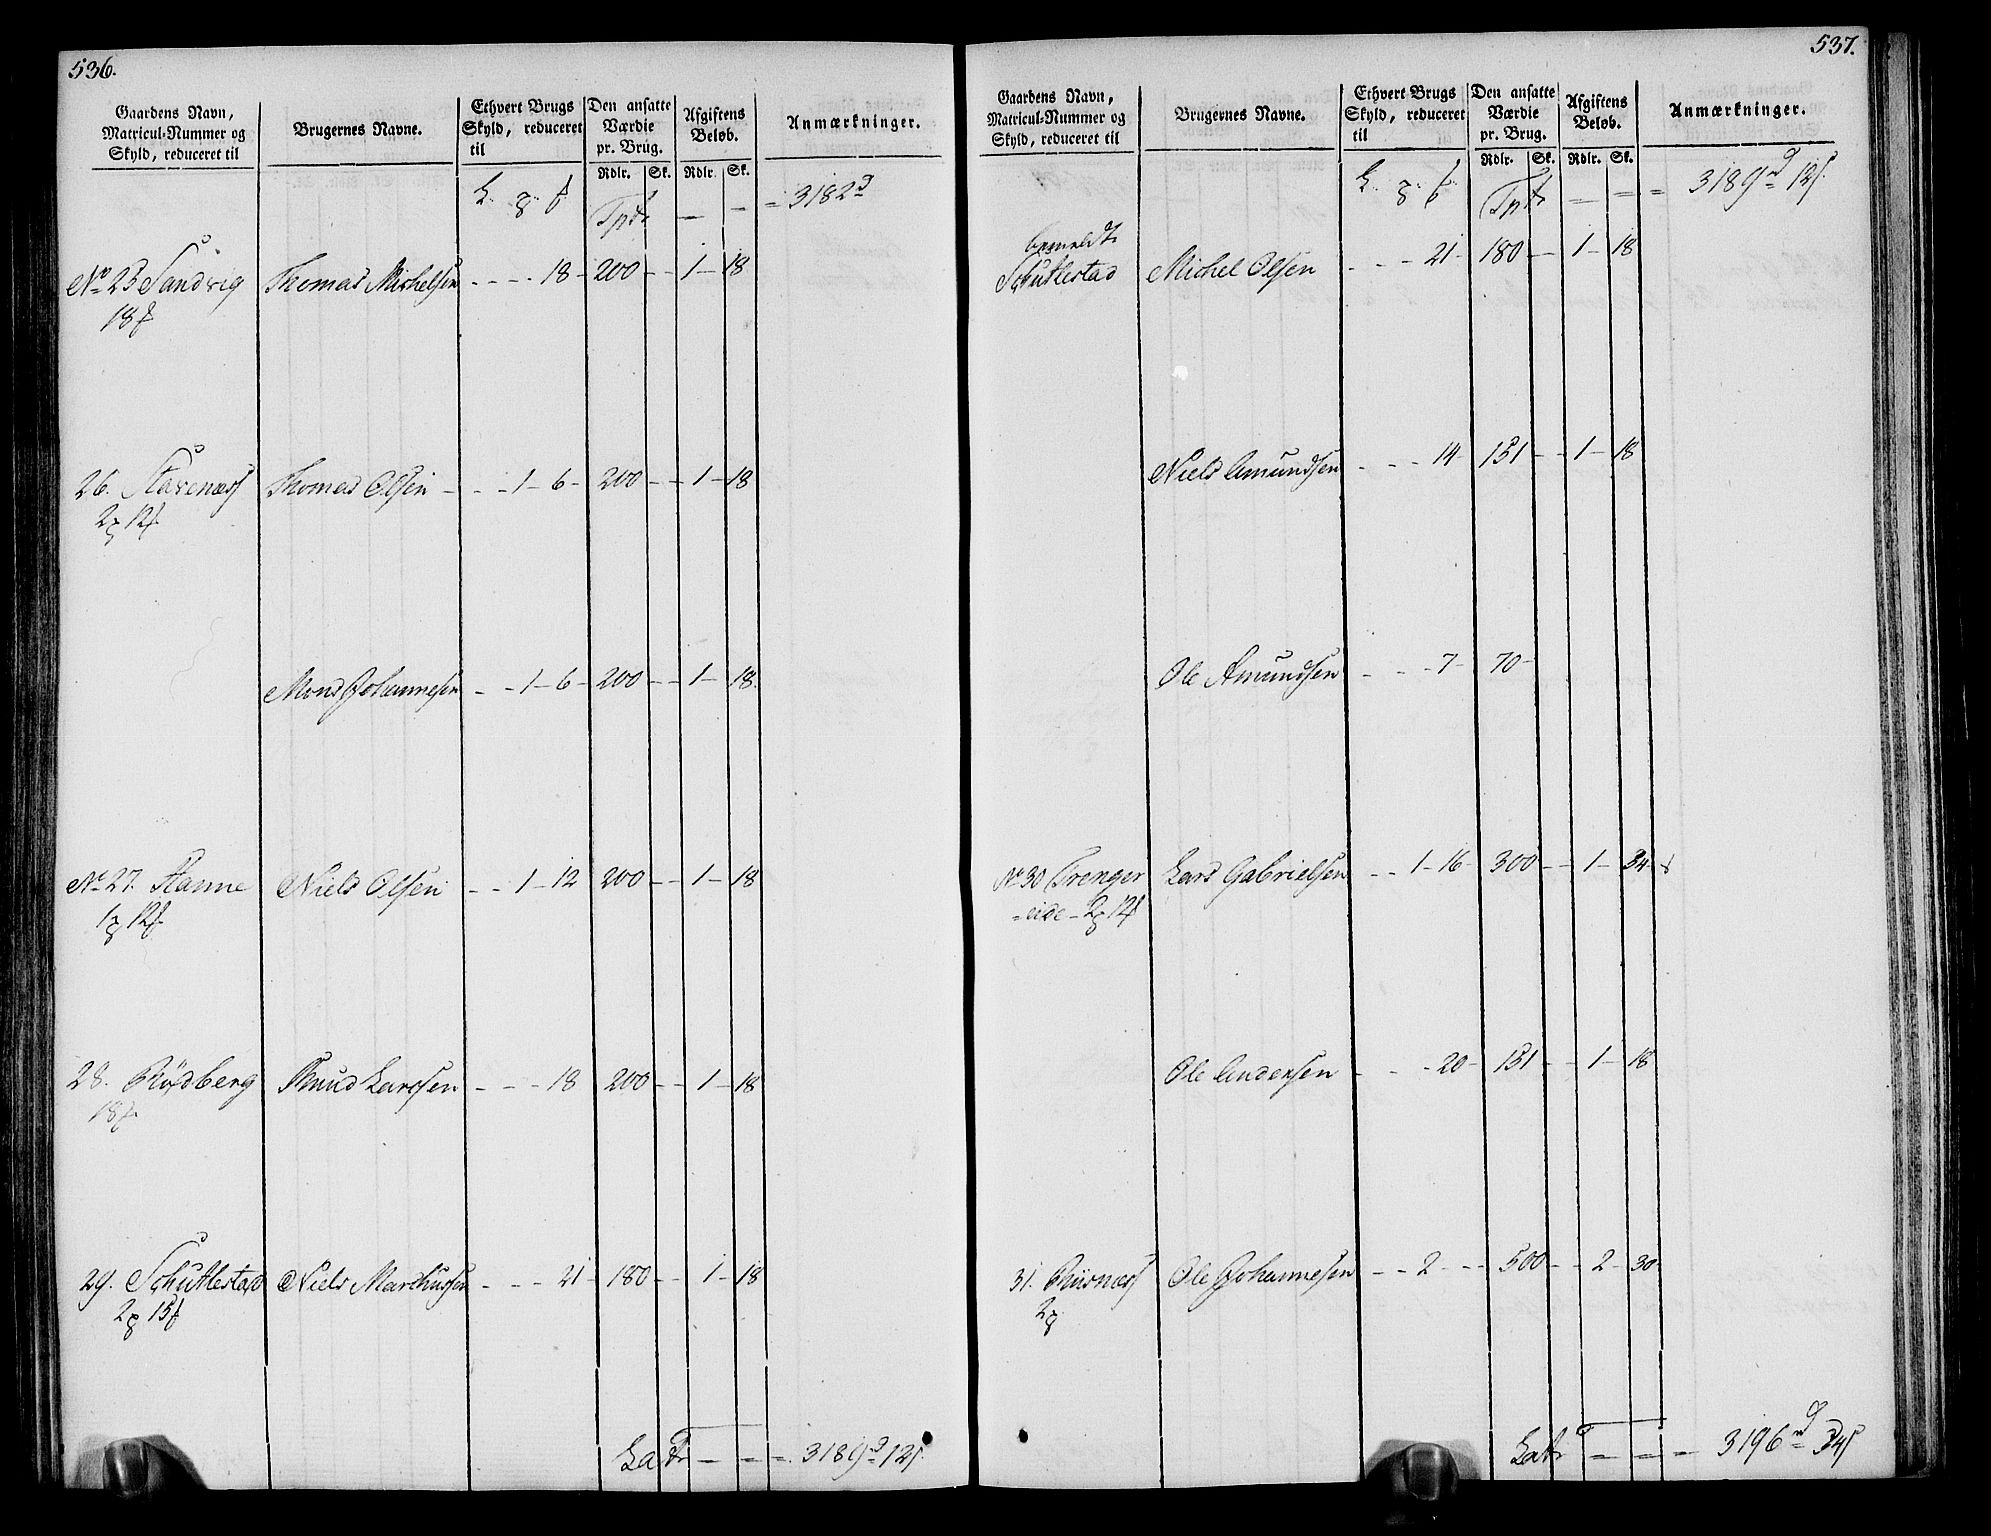 536.
Gaardens Navn, Matricul-Nummer og Skyld, reduceret til | Brugernes Navne. | Ethvert Brugs Skyld, reduceret til | Den ansatte Værdie pr. Brug. | Afgiftens Beløb. | Anmærkninger.
Rdlr. Sk. Rdlr. Sk.
L. 8. f Tptr — — = 3182 d
No 25 Sandvig Thomas Michelsen - - - - 18 - 200 - - 1 - 18
18 f
26. Starenæs Thomas Olsen - - - 1 - 6 - 200 - - 1 - 18
2 8 12 f
Mons Johannesen - - 1 - 6 - 200 - - 1 - 18.
No 27. Hanne Niels Olsen - - 1 - 12 200 - - 1 - 18
1 8 12 f
28. Rödberg Knud Larssen - - - 18 200 - - 1 - 18
18 f
29. Schutlestad Niels Marchussen - - - 21 - 180 - - 1 - 18
2 8 15 f
Latr — = = 3189 d 12 s
537.
Gaardens Navn, Matricul-Nummer og Skyld, reduceret til | Brugernes Navne. | Ethvert Brugs Skyld, reduceret til | Den ansatte Værdie pr. Brug. | Afgiftens Beløb. | Anmærkninger.
Rdlr. Sk. Rdlr. Sk.
L. 8. f. Tptr — = = 3189 d 12 s
bemeldte
Schutlestad Michel Olsen - - - 21 - 180 - - 1 - 18
Niels Amundsen - - - 14 - 151 - - 1 - 18
Ole Amundsen - - - 7 - 70 -
No 30 Trenger Lars Gabrielsen - - 1 - 16 - 300 - - 1 - 34
= eide - 2 8 12 f
Ole Andersen - - - 20 - 151 - - 1 - 18
31. Riisnæs Ole Johannesen - - 2 - - - 500 - - 2 - 30
2 8
Latr = = = 3196 d 34 s